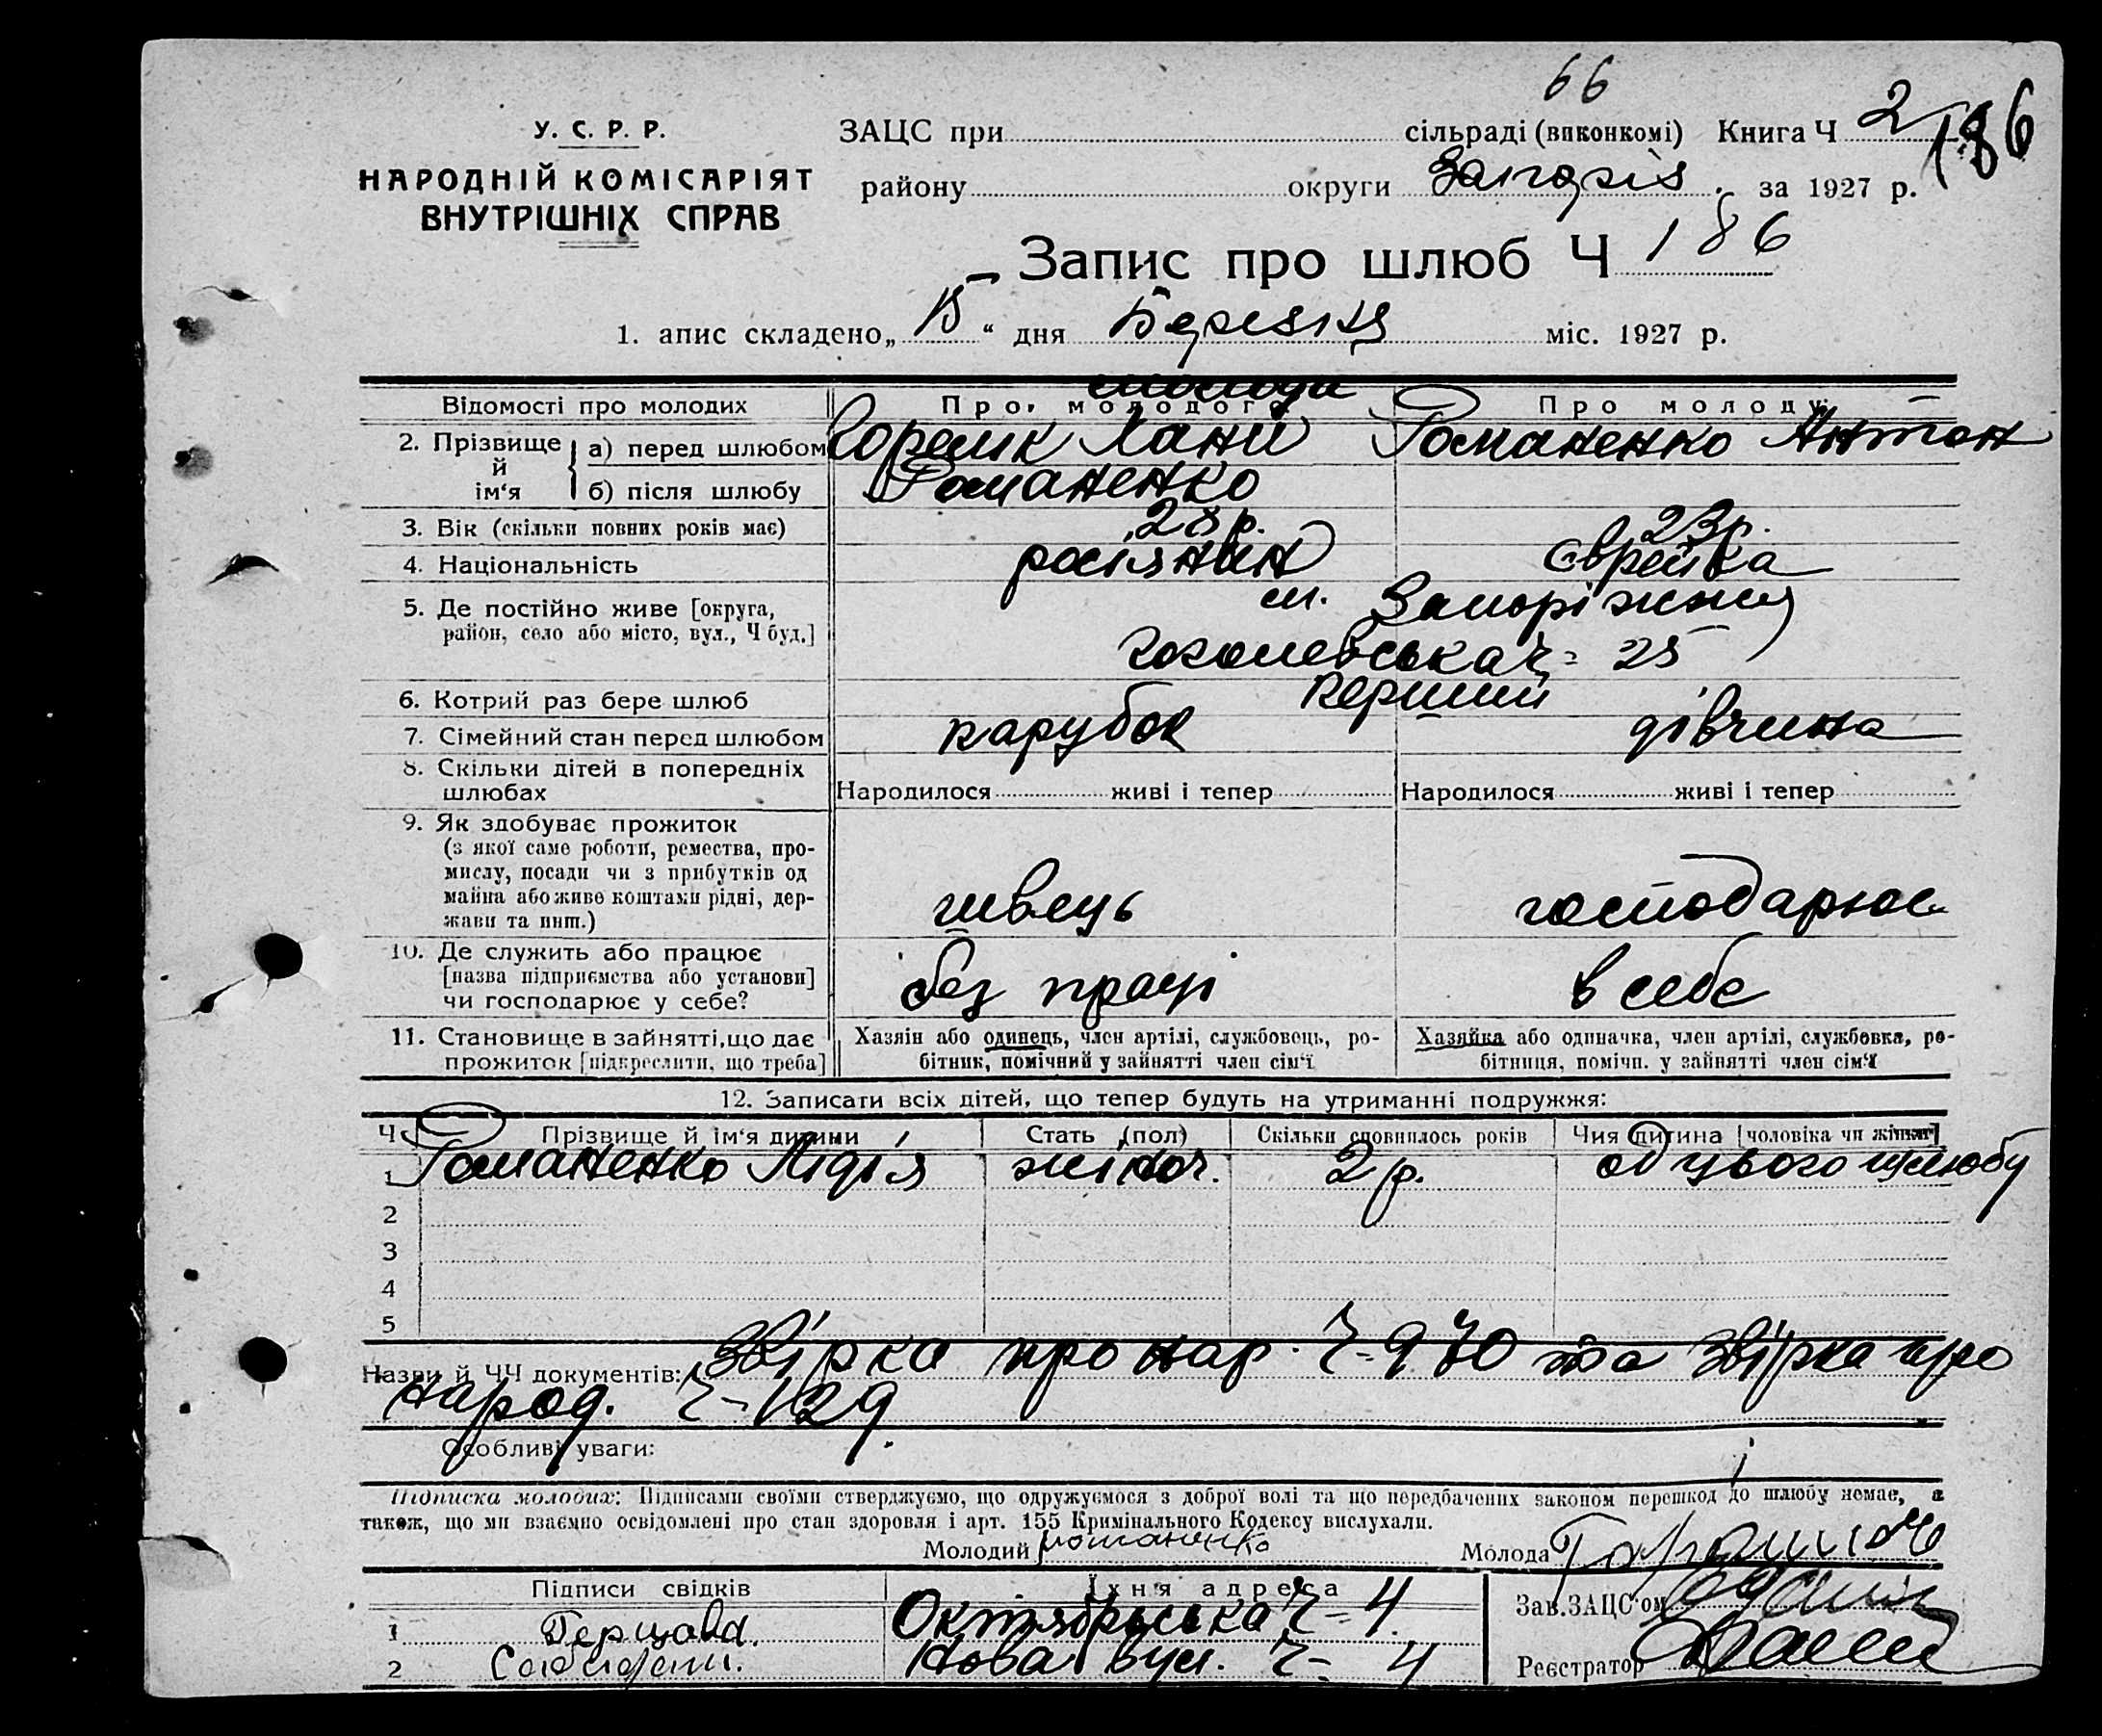 66
У. С. Р. Р.
НАРОДНІЙ КОМІСАРІЯТ
ВНУТРІШНІХ СПРАВ
ЗАЦС при сільраді (виконкомі) Книга Ч 2 186
району округи Запоріз. за 1927 р.
Запис про шлюб Ч 186
1. апис складено „15“ дня Березня міс. 1927 р.
Відомості про молодих Про молодого молоди Про молоду
2. Прізвище й ім‘я а) перед шлюбом Горелік Хани Романенко Антон
б) після шлюбу Романенко
3. Вік (скільки повних років має) 28 р. 23 р.
4. Національність росіянин єврейка
5. Де постійно живе [округа, район, село або місто, вул., Ч буд.] м. Запоріжжя
Гоголевська Ч - 25
6. Котрий раз бере шлюб перший
7. Сімейний стан перед шлюбом парубок дівчина
8. Скільки дітей в попередніх шлюбах Народилося живі і тепер Народилося живі і тепер
9. Як здобуває прожиток
(з якої саме роботи, ремества, про-
мислу, посади чи з прибутків од
майна або живе коштами рідні, дер-
жави та инш.) швець господарює
10. Де служить або працює
[назва підприємства або установи]
чи господарює у себе? без праці в себе
11. Становище в зайнятті, що дає прожиток [підкреслити, що треба] Хазяїн або одинець, член артілі, службовець, ро-
бітник, помічний у зайнятті член сім‘ї
Хазяйка або одиначка, член артілі, службовка, ро-
бітниця, помічн. у зайнятті член сім‘ї
12. Записати всіх дітей, що тепер будуть на утриманні подружжя:
Ч Прізвище й ім‘я дитини Стать (пол) Скільки сповнилось років Чия дитина [чоловіка чи жінки]
1 Романенко Лідія жіноч. 2 р. од цього шлюбу
2
3
4
5
Назви й ЧЧ документів: Звірка про нар. Ч-970 та звірка про
народ. Ч-129
Особливі уваги:
Підписка молодих: Підписами своїми стверджуємо, що одружуємося з доброї волі та що передбачених законом перешкод до шлюбу немає, а
також, що ми взаємно освідомлені про стан здоровля і арт. 155 Кримінального Кодексу вислухали.
Молодий Романенко Молода
Підписи свідків Їхня адреса Зав. ЗАЦС‘ом
1 Октябрьська Ч - 4.
2 Нова вул. Ч - 4 Реєстратор